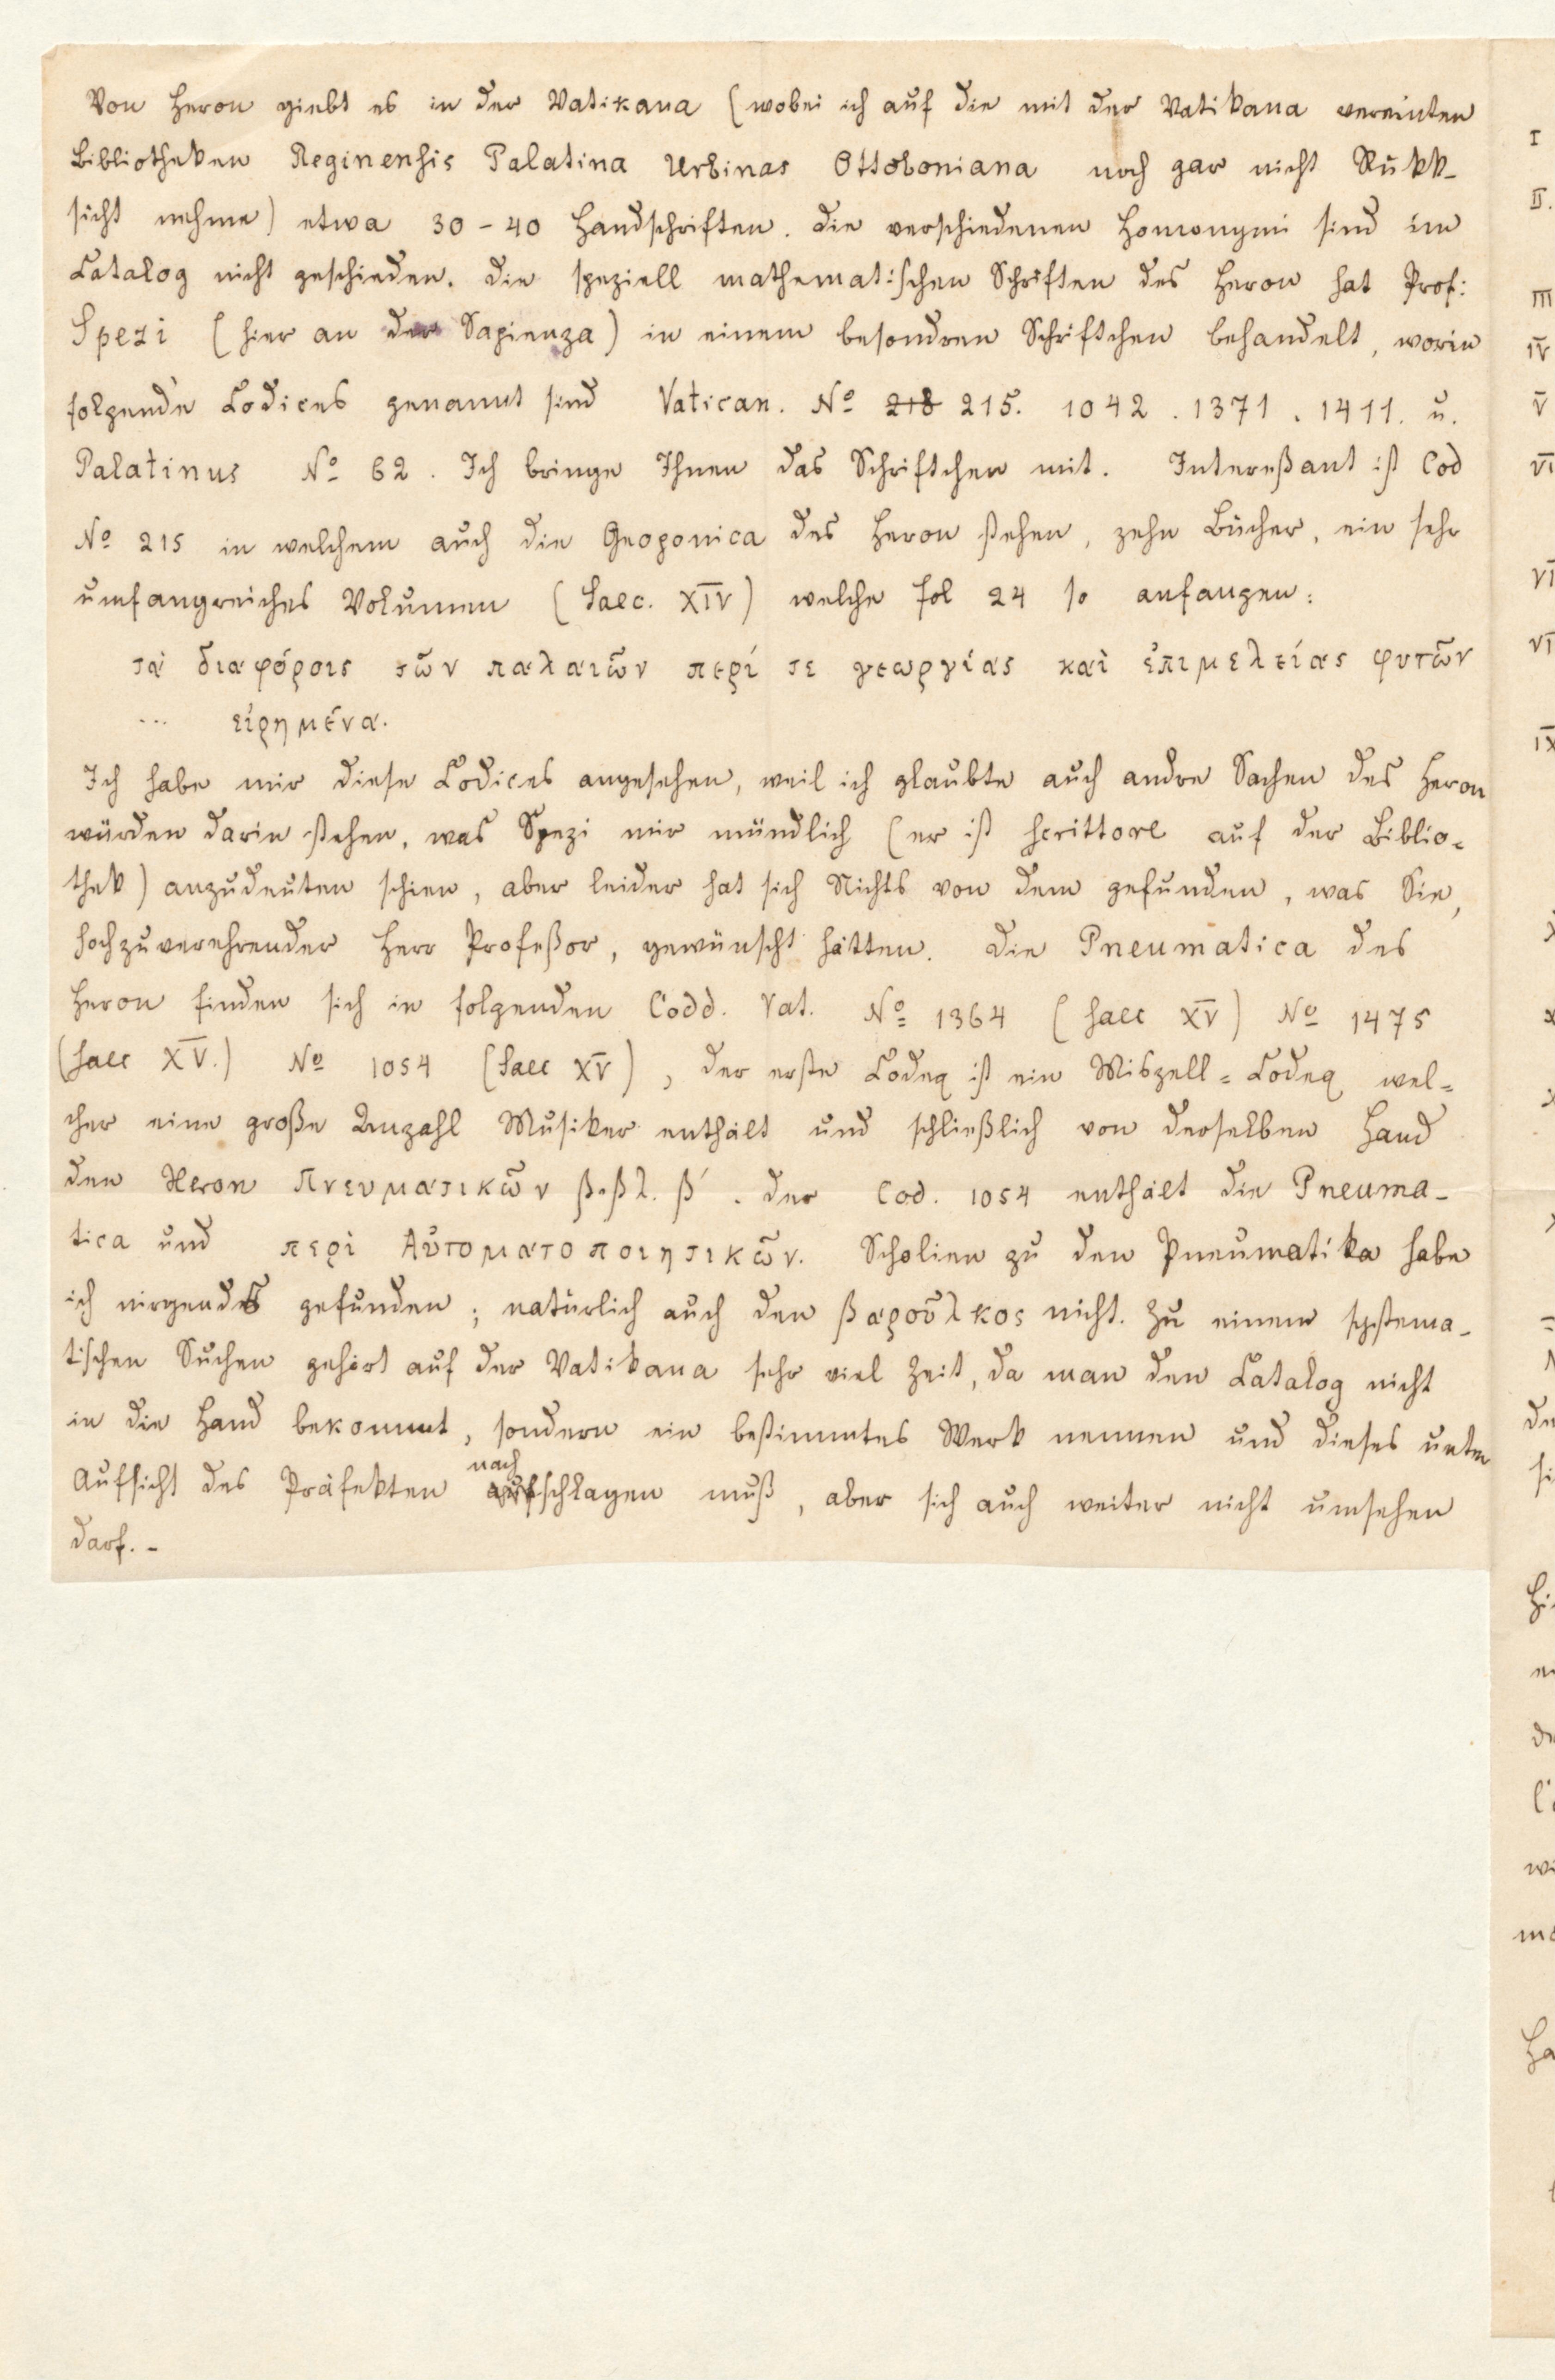 Von Heron giebt es in der Vatikana (wobei ich auf die mit der Vatikana vereinten
Bibliotheken Reginensis Palatina Urbinas Ottoboniana noch gar nicht Rükk-
sicht nehme) etwa 30-40 Handschriften. Die verschiedenen Homonymi sind im
Catalog nicht geschieden. Die speziell mathematischen Schriften des Heron hat Prof:
Spezi (hier an der Sapienza) in einem besondren Schriftchen behandelt, worin
folgende Codices genannt sind Vatican. No 218 215. 1042. 1371. 1411. u.
Palatinus No 62. Ich bringe Ihnen das Schriftchen mit. Intereßant ist Cod
No 215 in welchem auch die Geoponica des Heron stehen, zehn Bücher, ein sehr
umfangreiches Volumen (Saec. XIV) welche fol 24 so anfangen:
τὰ διαφόροις τῶν παλαιῶν περί τε γεωργίας καὶ ἐπιμελείας φυτῶν
... εἰρημένα.
Ich habe mir diese Codices angesehen, weil ich glaubte auch andre Sachen des Heron
würden darin stehen, was Spezi mir mündlich (er ist scrittore auf der Biblio=
thek) anzudeuten schien, aber leider hat sich Nichts von dem gefunden, was Sie,
hochzuverehrender Herr Profeßor, gewünscht hätten. Die Pneumatica des
Heron finden sich in folgenden Codd. Vat. No 1364 (saec XV) No 1475
(saec XV.) No 1054 (Saec XV), der erste Codex ist ein Miszell=Codex wel=
cher eine große Anzahl Musiker enthält und schließlich von derselben Hand
den Heron Πνευματικῶν βιβλ. β´. Der Cod. 1054 enthält die Pneuma-
tica und περὶ Αὐτοματοποιητικῶν. Scholien zu den Pneumatika habe
ich nirgends gefunden; natürlich auch den βαροῦλκος nicht. Zu einem systema-
tischen Suchen gehört auf der Vatikana sehr viel Zeit, da man den Catalog nicht
in die Hand bekommt, sondern ein bestimmtes Werk nennen und dieses unter
nach
Aufsicht des Präfekten aufschlagen muß, aber sich auch weiter nicht umsehen
darf. -
I
II.
III
IV
V
VI